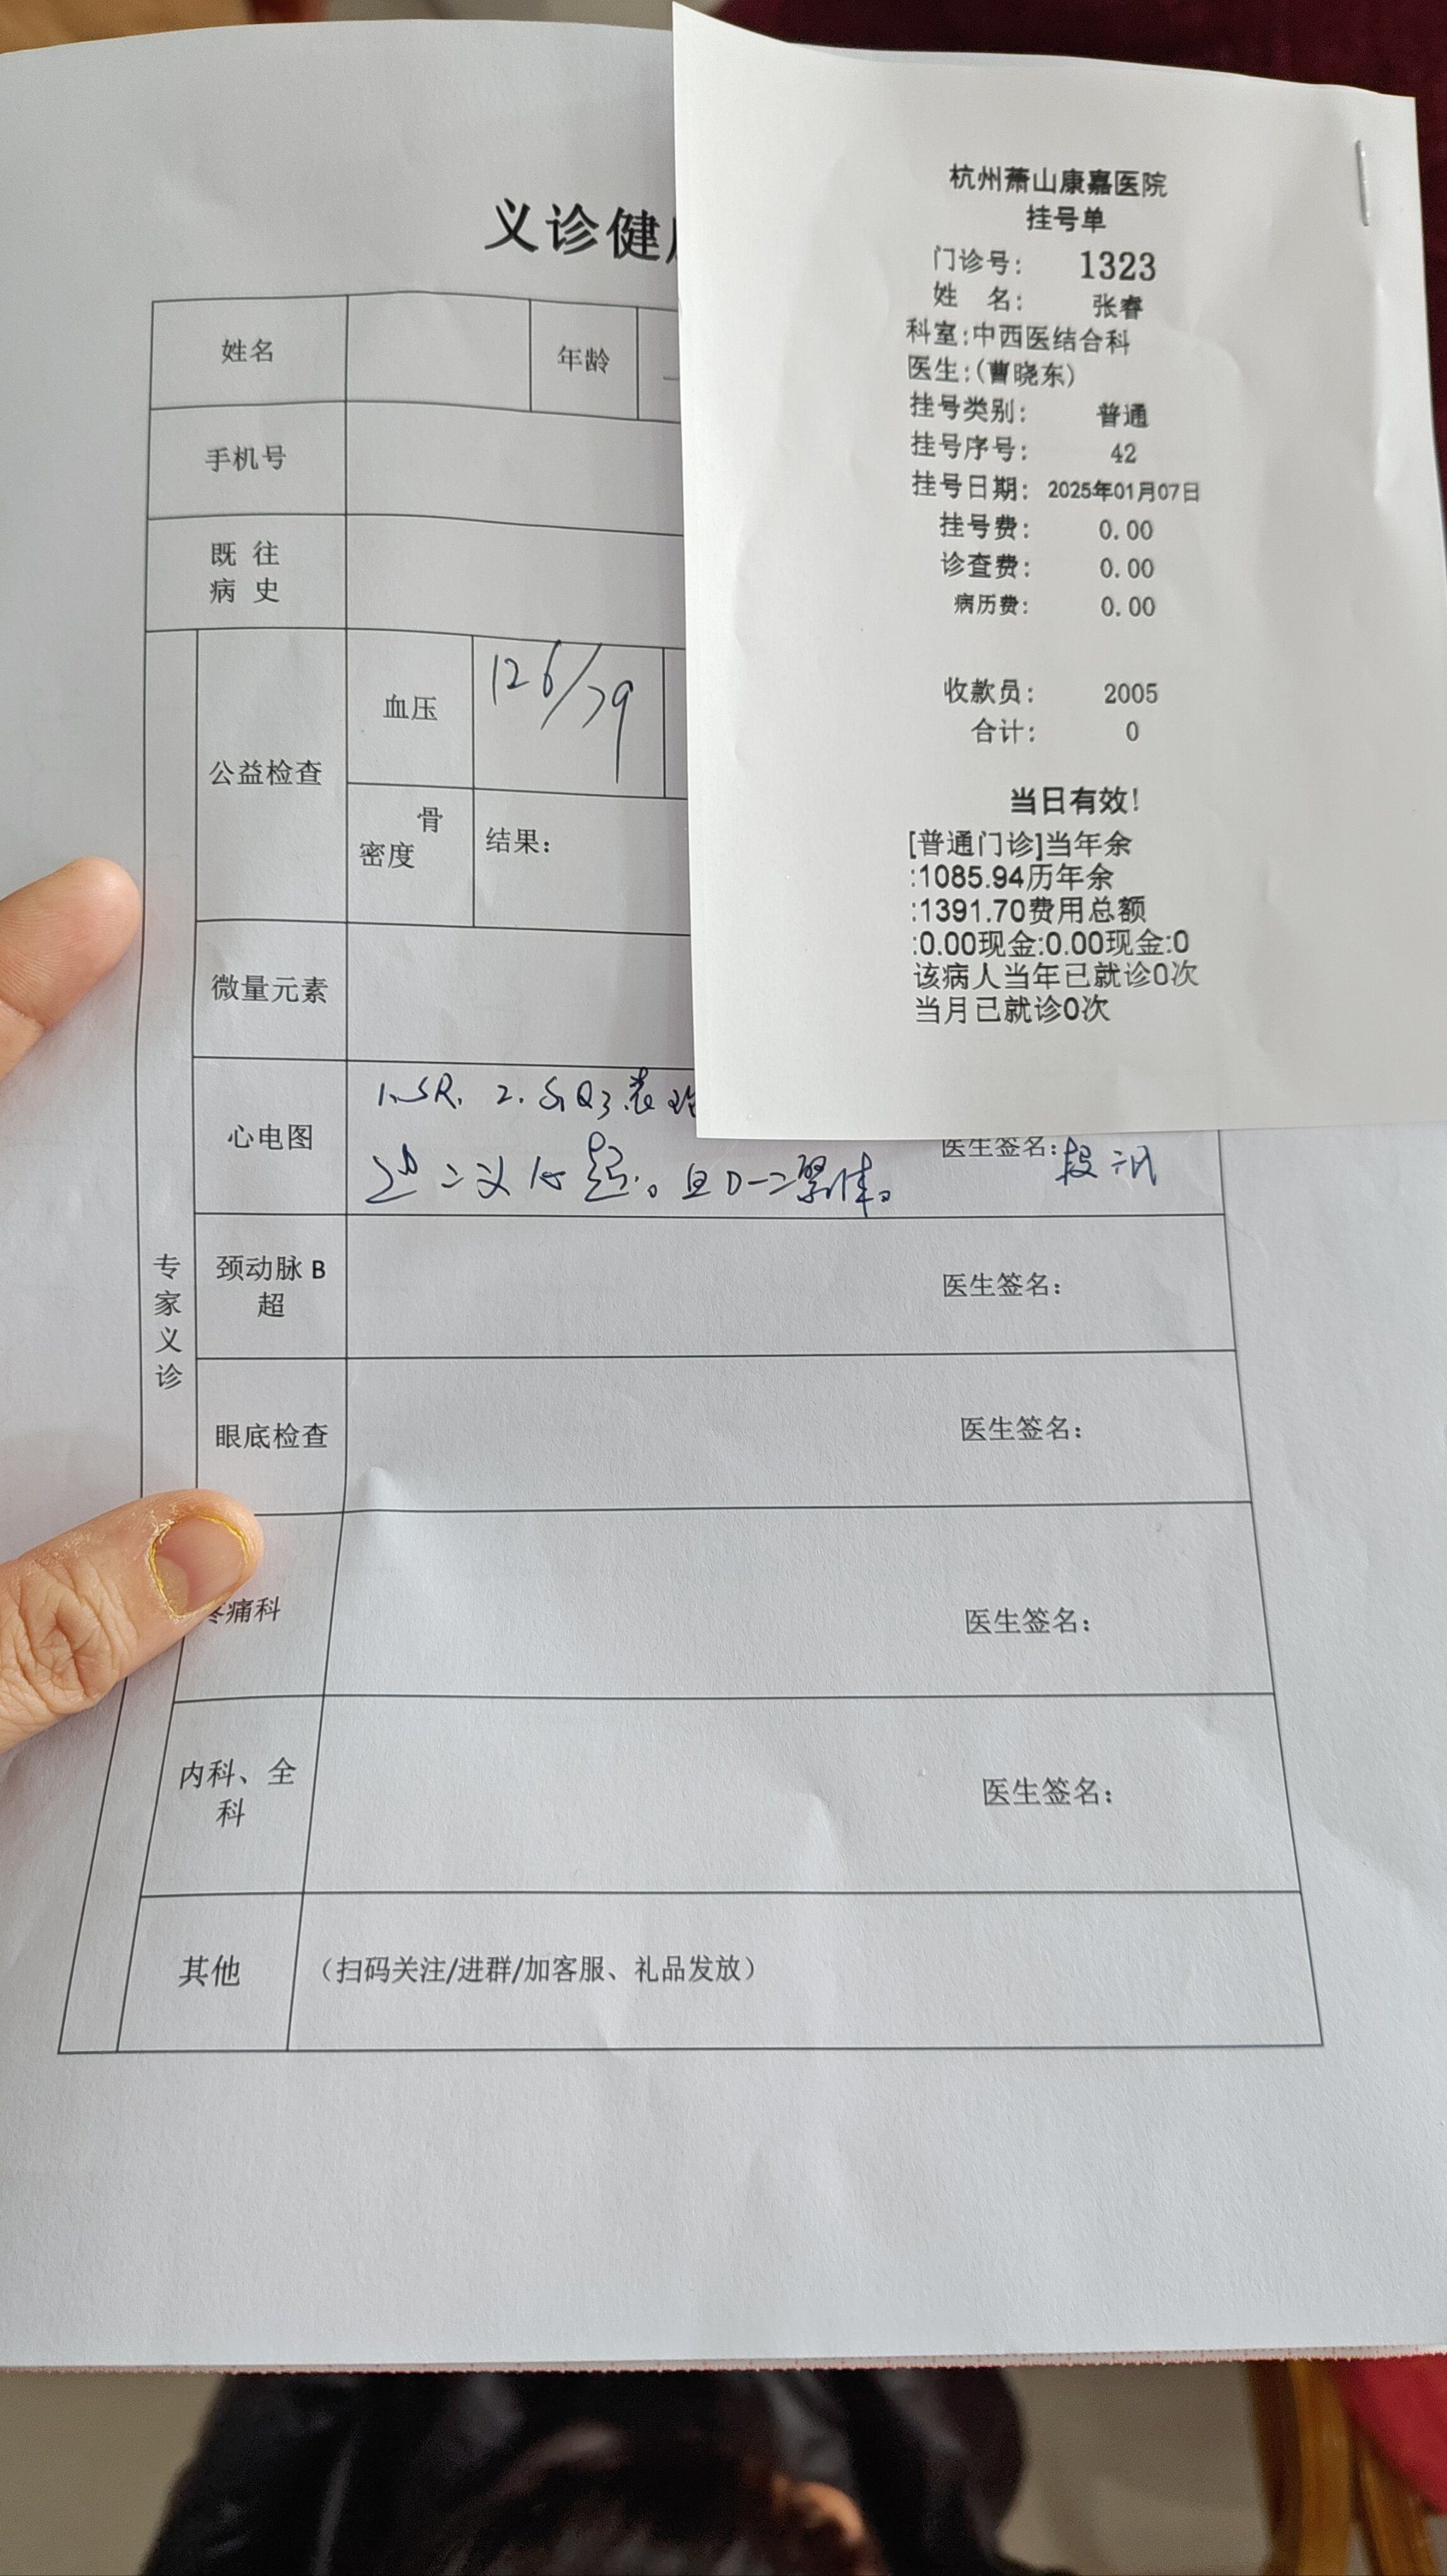 义诊健
姓名
年龄
手机号
既 往
病 史
专家义诊
公益检查
血压
126/79
骨
密度
结果：
微量元素
心电图
1.SR. 2. SⅠQ3
医生签名：
颈动脉 B
超
医生签名：
眼底检查
医生签名：
疼痛科
医生签名：
内科、全
科
医生签名：
其他
（扫码关注/进群/加客服、礼品发放）
杭州萧山康嘉医院
挂号单
门诊号: 1323
姓 名: 张睿
科室:中西医结合科
医生:(曹晓东)
挂号类别: 普通
挂号序号: 42
挂号日期: 2025年01月07日
挂号费: 0.00
诊查费: 0.00
病历费: 0.00
收款员: 2005
合计: 0
当日有效!
[普通门诊]当年余
:1085.94历年余
:1391.70费用总额
:0.00现金:0.00现金:0
该病人当年已就诊0次
当月已就诊0次